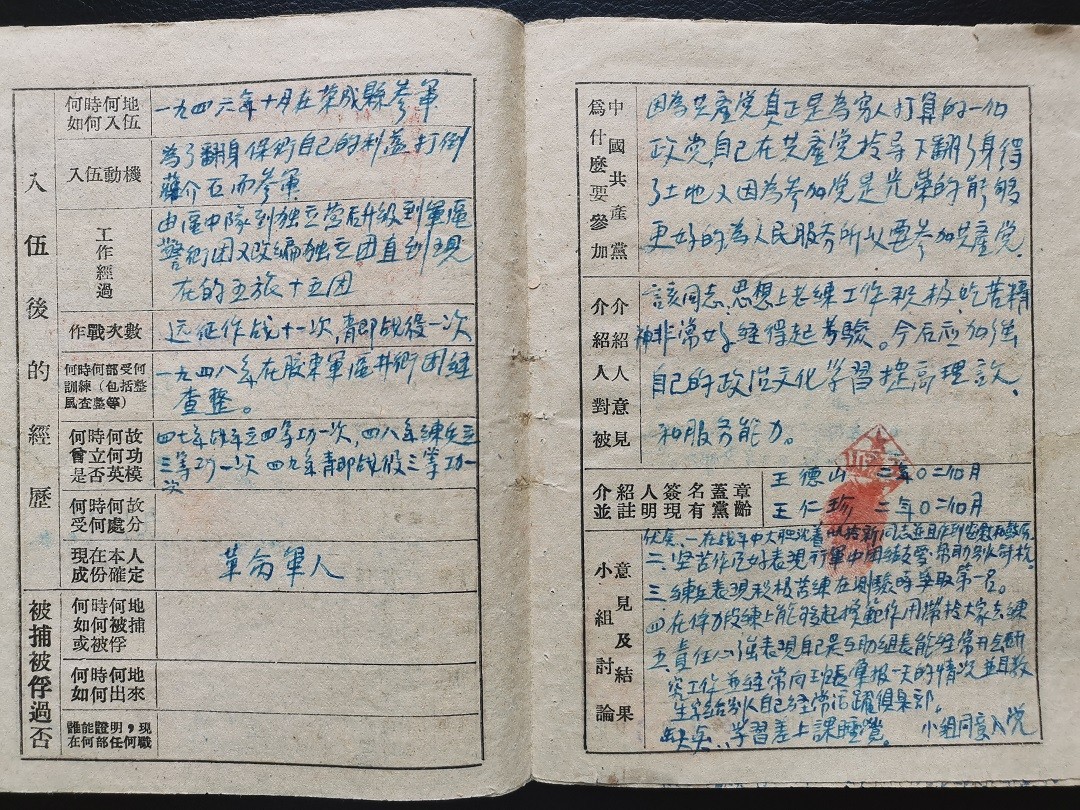 入伍後的經歷
何時何地
如何入伍
一九四六年十月在荣成縣参軍
入伍動機
為了翻身保衛自己的利益打倒
蔣介石而参軍
工作經過
由區中隊到独立营后升級到軍區
警衛团又改编独立团直到现
在的五旅十五团
作戰次數
远征作战十一次,青即战役一次
何時何部受何
訓練(包括整
風查整等)
一九四八年在胶東軍區
查整。
何時何故
曾立何功
是否英模
四七年战斗立四等功一次,四八年練兵立
三等功一次 四九年青即战役三等功一
次
何時何故
受何處分
現在本人
成份確定
革命軍人
被捕被俘過否
何時何地
如何被捕
或被俘
何時何地
如何出來
誰能證明,現
在何部任何職
為什麼要參加
中國共產黨
因為共產党真正是為穷人打算的一個
政党,自己在共產党領导下翻了身得
了土地又因為参加党是光荣的能够
更好的為人民服务所以要参加共產党.
介紹人對被
介紹人意見
該同志.思想上老練工作积极吃苦精
神非常好経得起考驗。今后应加強
自己的政治文化学習提高理論、
和服务能力。
介紹人簽名蓋章
並註明現有黨齡
王德山 二年0二個月
王仁珍 二年0二個月
小組討論
意見及結果
优点.一在战斗中大胆沈着
二.坚苦作风好表現行軍中团结友爱.帮助别人背枪
三.練兵表現积极苦練在測驗時争取第一名。
四.在体力鍛練上能够起模範作用带領大家去練
五.責任心強表現自己是互助組長能経常开会研
究工作並経常向班長彙报一天的情况並且教
自己経常活躍俱楽部.
缺点、学習差上課睡覺。 小組同意入党